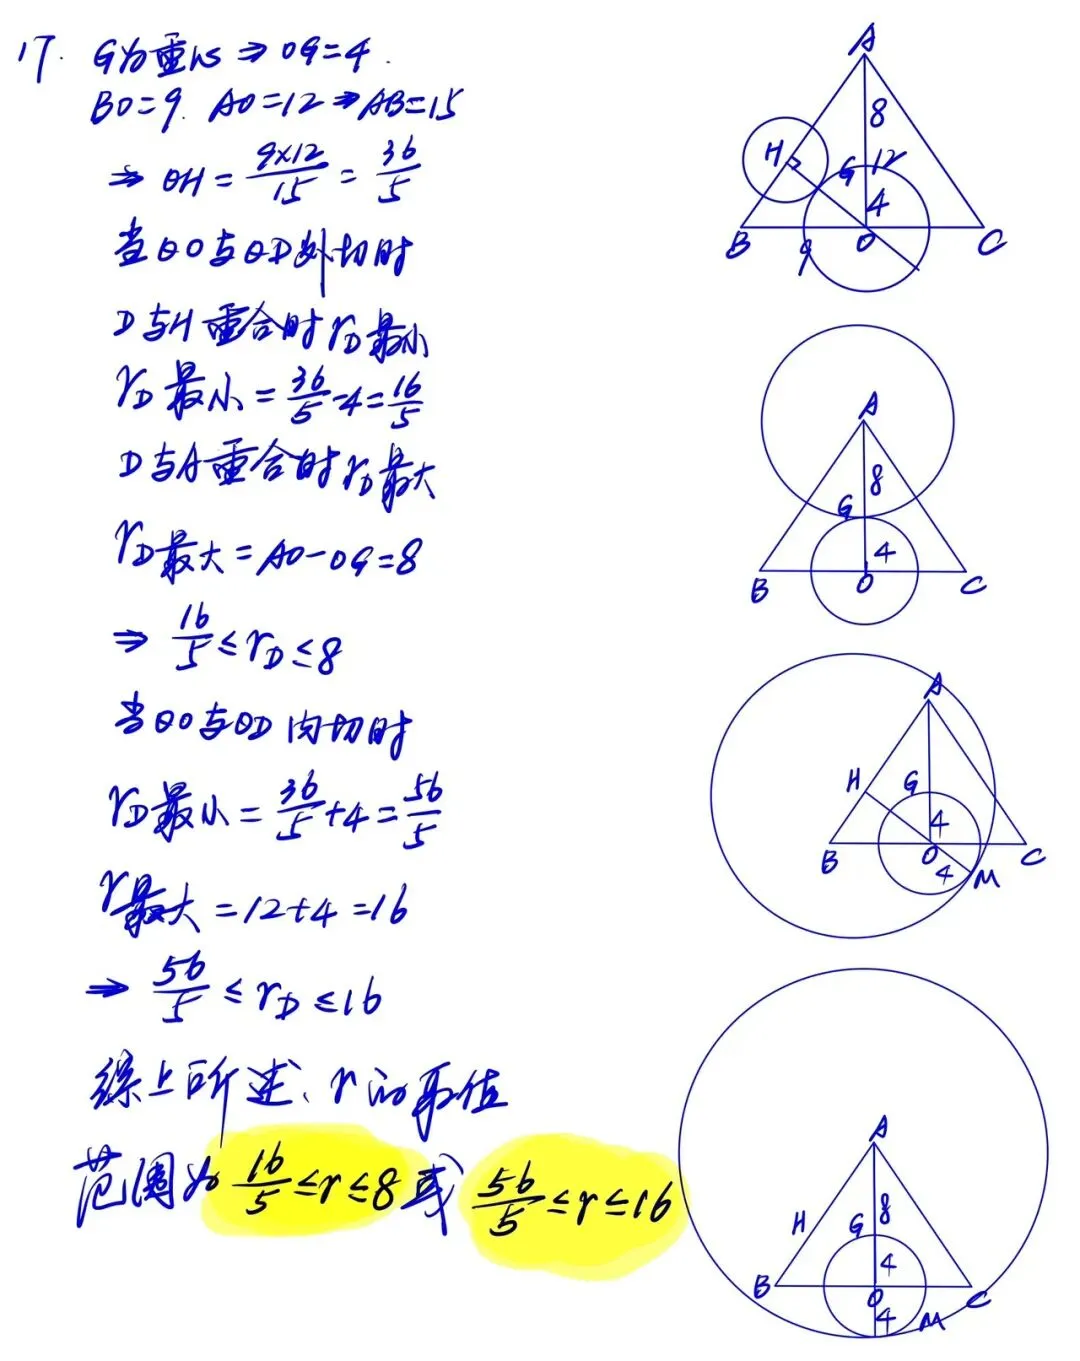 17. G为重心⇒OG=4.
BO=9. AO=12⇒AB=15
⇒ OH = 9×12/15 = 36/5
当⊙O与⊙D外切时
D与H重合时 r_D最小
r_D最小 = 36/5 - 4 = 16/5
D与A重合时 r_D最大
r_D最大 = AO-OG=8
⇒ 16/5 ≤ r_D ≤ 8
当⊙O与⊙D内切时
r_D最小 = 36/5 + 4 = 56/5
r最大 = 12+4 = 16
⇒ 56/5 ≤ r_D ≤ 16
综上所述、r的取值
范围为 16/5 ≤ r ≤ 8 或 56/5 ≤ r ≤ 16
A
8
H
G 12
4
B 9 O C
A
8
G
4
B O C
A
H G
4
B O C
4 M
A
H G 8
4
B O C
4 M